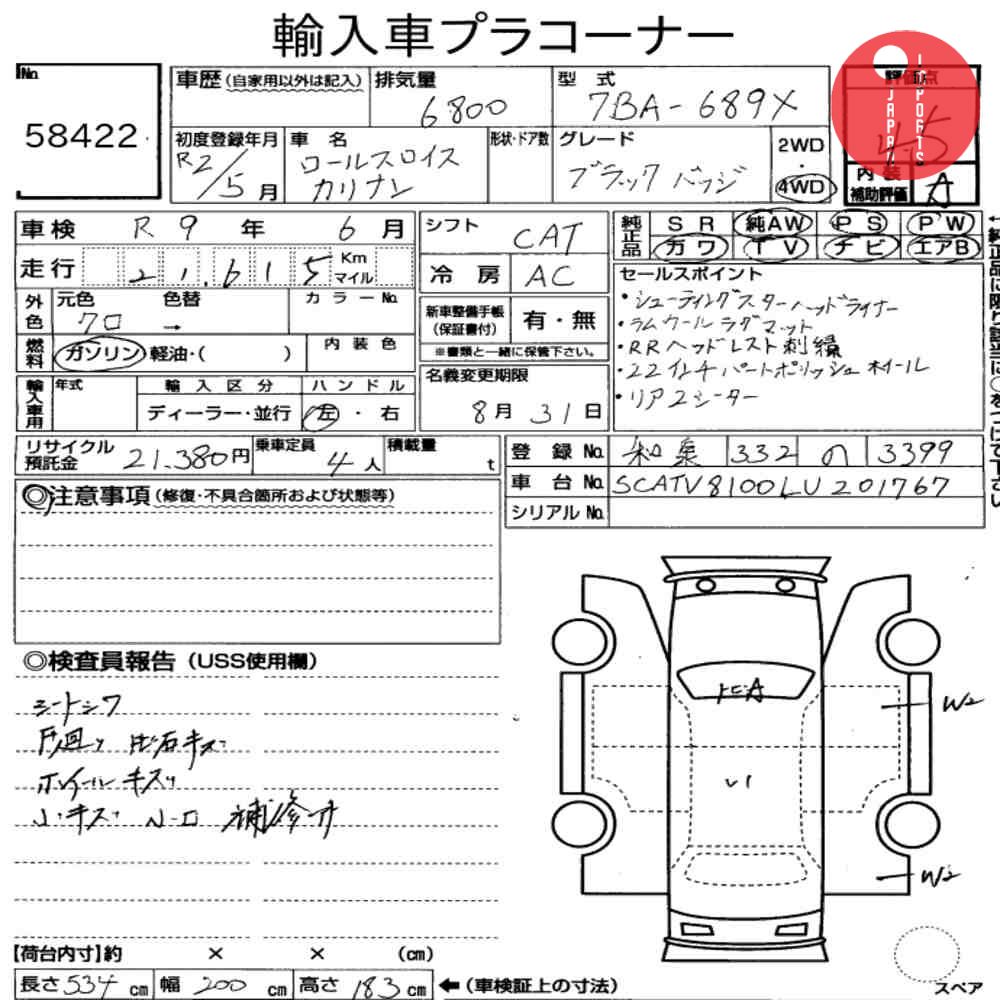 輸入車プラコーナー
No.
58422
車歴(自家用以外は記入)
排気量
6800
型式
7BA-689X
評価点
4.5
初度登録年月
R2/5月
車名
ロールスロイス
カリナン
形状・ドア数
グレード
ブラックバッジ
2WD
・
4WD
内装
補助評価
A
JAPAN
IMPORTS
車検 R9年6月
走行 21,615 Km
マイル
シフト
CAT
冷房 AC
純正品
SR 純AW PS P'W
カワ TV ナビ エアB
←純正品に限り該当に○をつけて下さい
セールスポイント
・シューティングスターヘッドライナー
・ラムウールラグマット
・RRヘッドレスト刺繍
・22インチパートポリッシュホイール
・リア2シーター
外色
元色 色替
クロ →
カラーNo.
燃料
ガソリン・軽油・( )
内装色
新車整備手帳
(保証書付)
有・無
※書類と一緒に保管下さい。
輸入車用
年式
輸入区分
ディーラー・並行
ハンドル
左・右
名義変更期限
8月31日
リサイクル
預託金
21.380円
乗車定員
4人
積載量
t
登録No. 和泉 332 の 3399
車台No. SCATV8100LU201767
シリアルNo.
◎注意事項(修復・不具合箇所および状態等)
◎検査員報告(USS使用欄)
シートシワ
内廻り 飛石キズ
ホイールキズ
小キズ 補修
A
W2
W2
【荷台内寸】約 × × (cm)
長さ534cm 幅200cm 高さ183cm ←(車検証上の寸法)
スペア